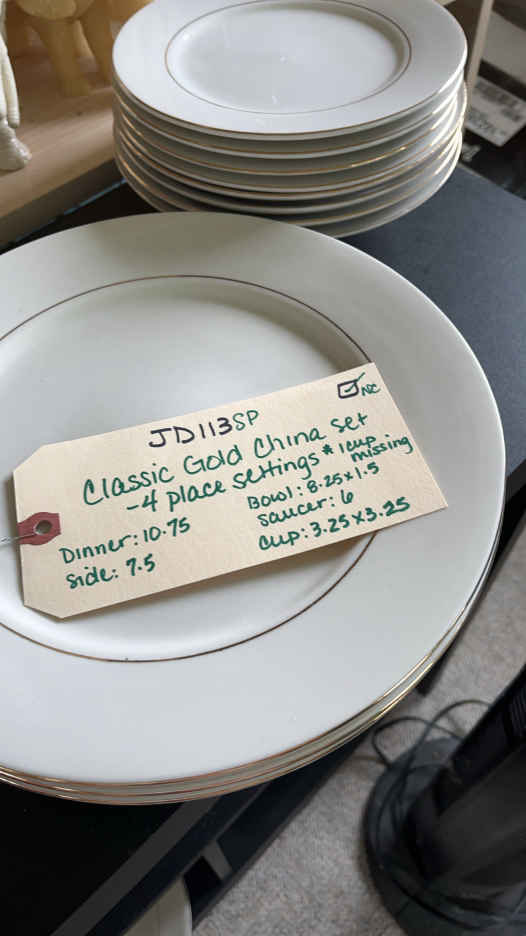 JD113SP
☑ NC
Classic Gold China set
-4 place settings * 1 cup missing
Dinner: 10.75
Side: 7.5
Bowl: 8.25 x 1.5
Saucer: 6
Cup: 3.25 x 3.25